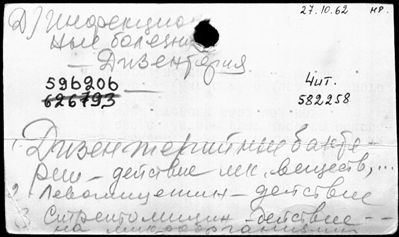 27.10.62 НР.
Д) Инфекцион
ные болезни
— Дизентерия
596206
626793
Чит.
582258
1. Дизентерийные бакте-
рии — действие лек. веществ,...
2. Левомицетин — действие
3. Стрептомицин — действие --
на микроорганизмы